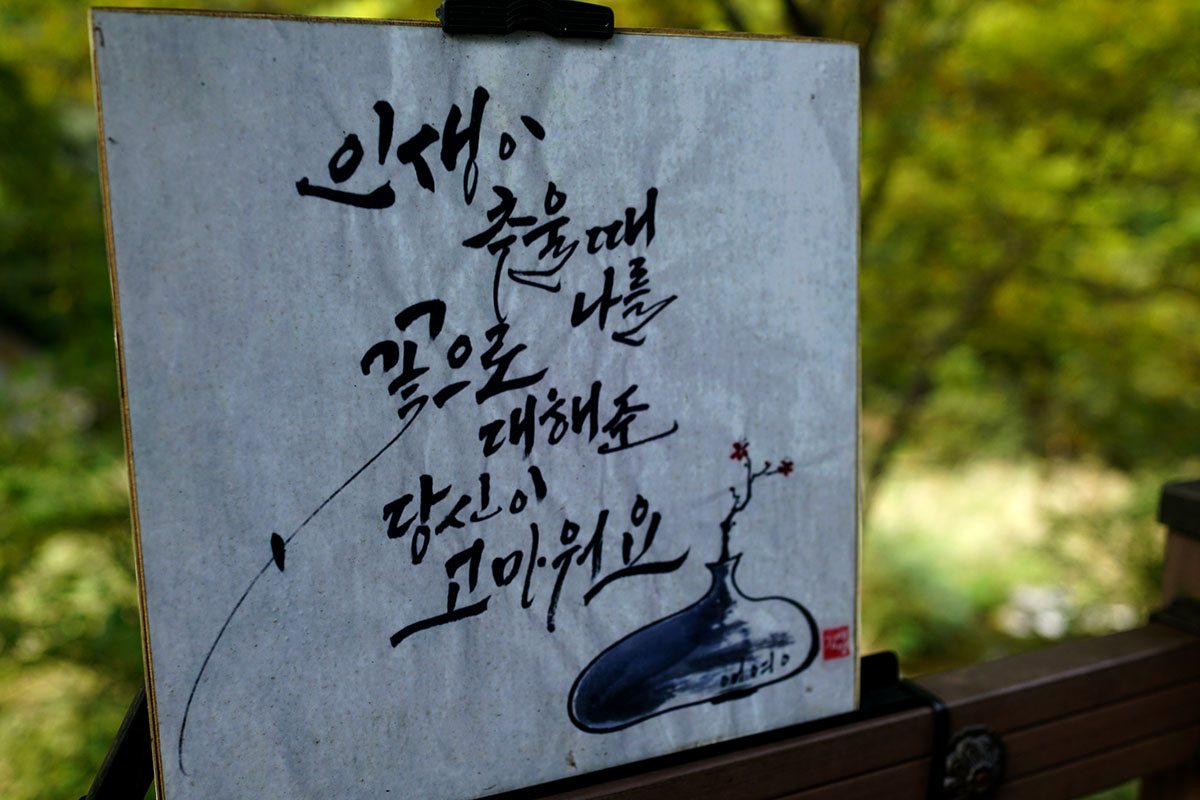 인생이
추울 때
나를
꽃으로
대해준
당신이
고마워요